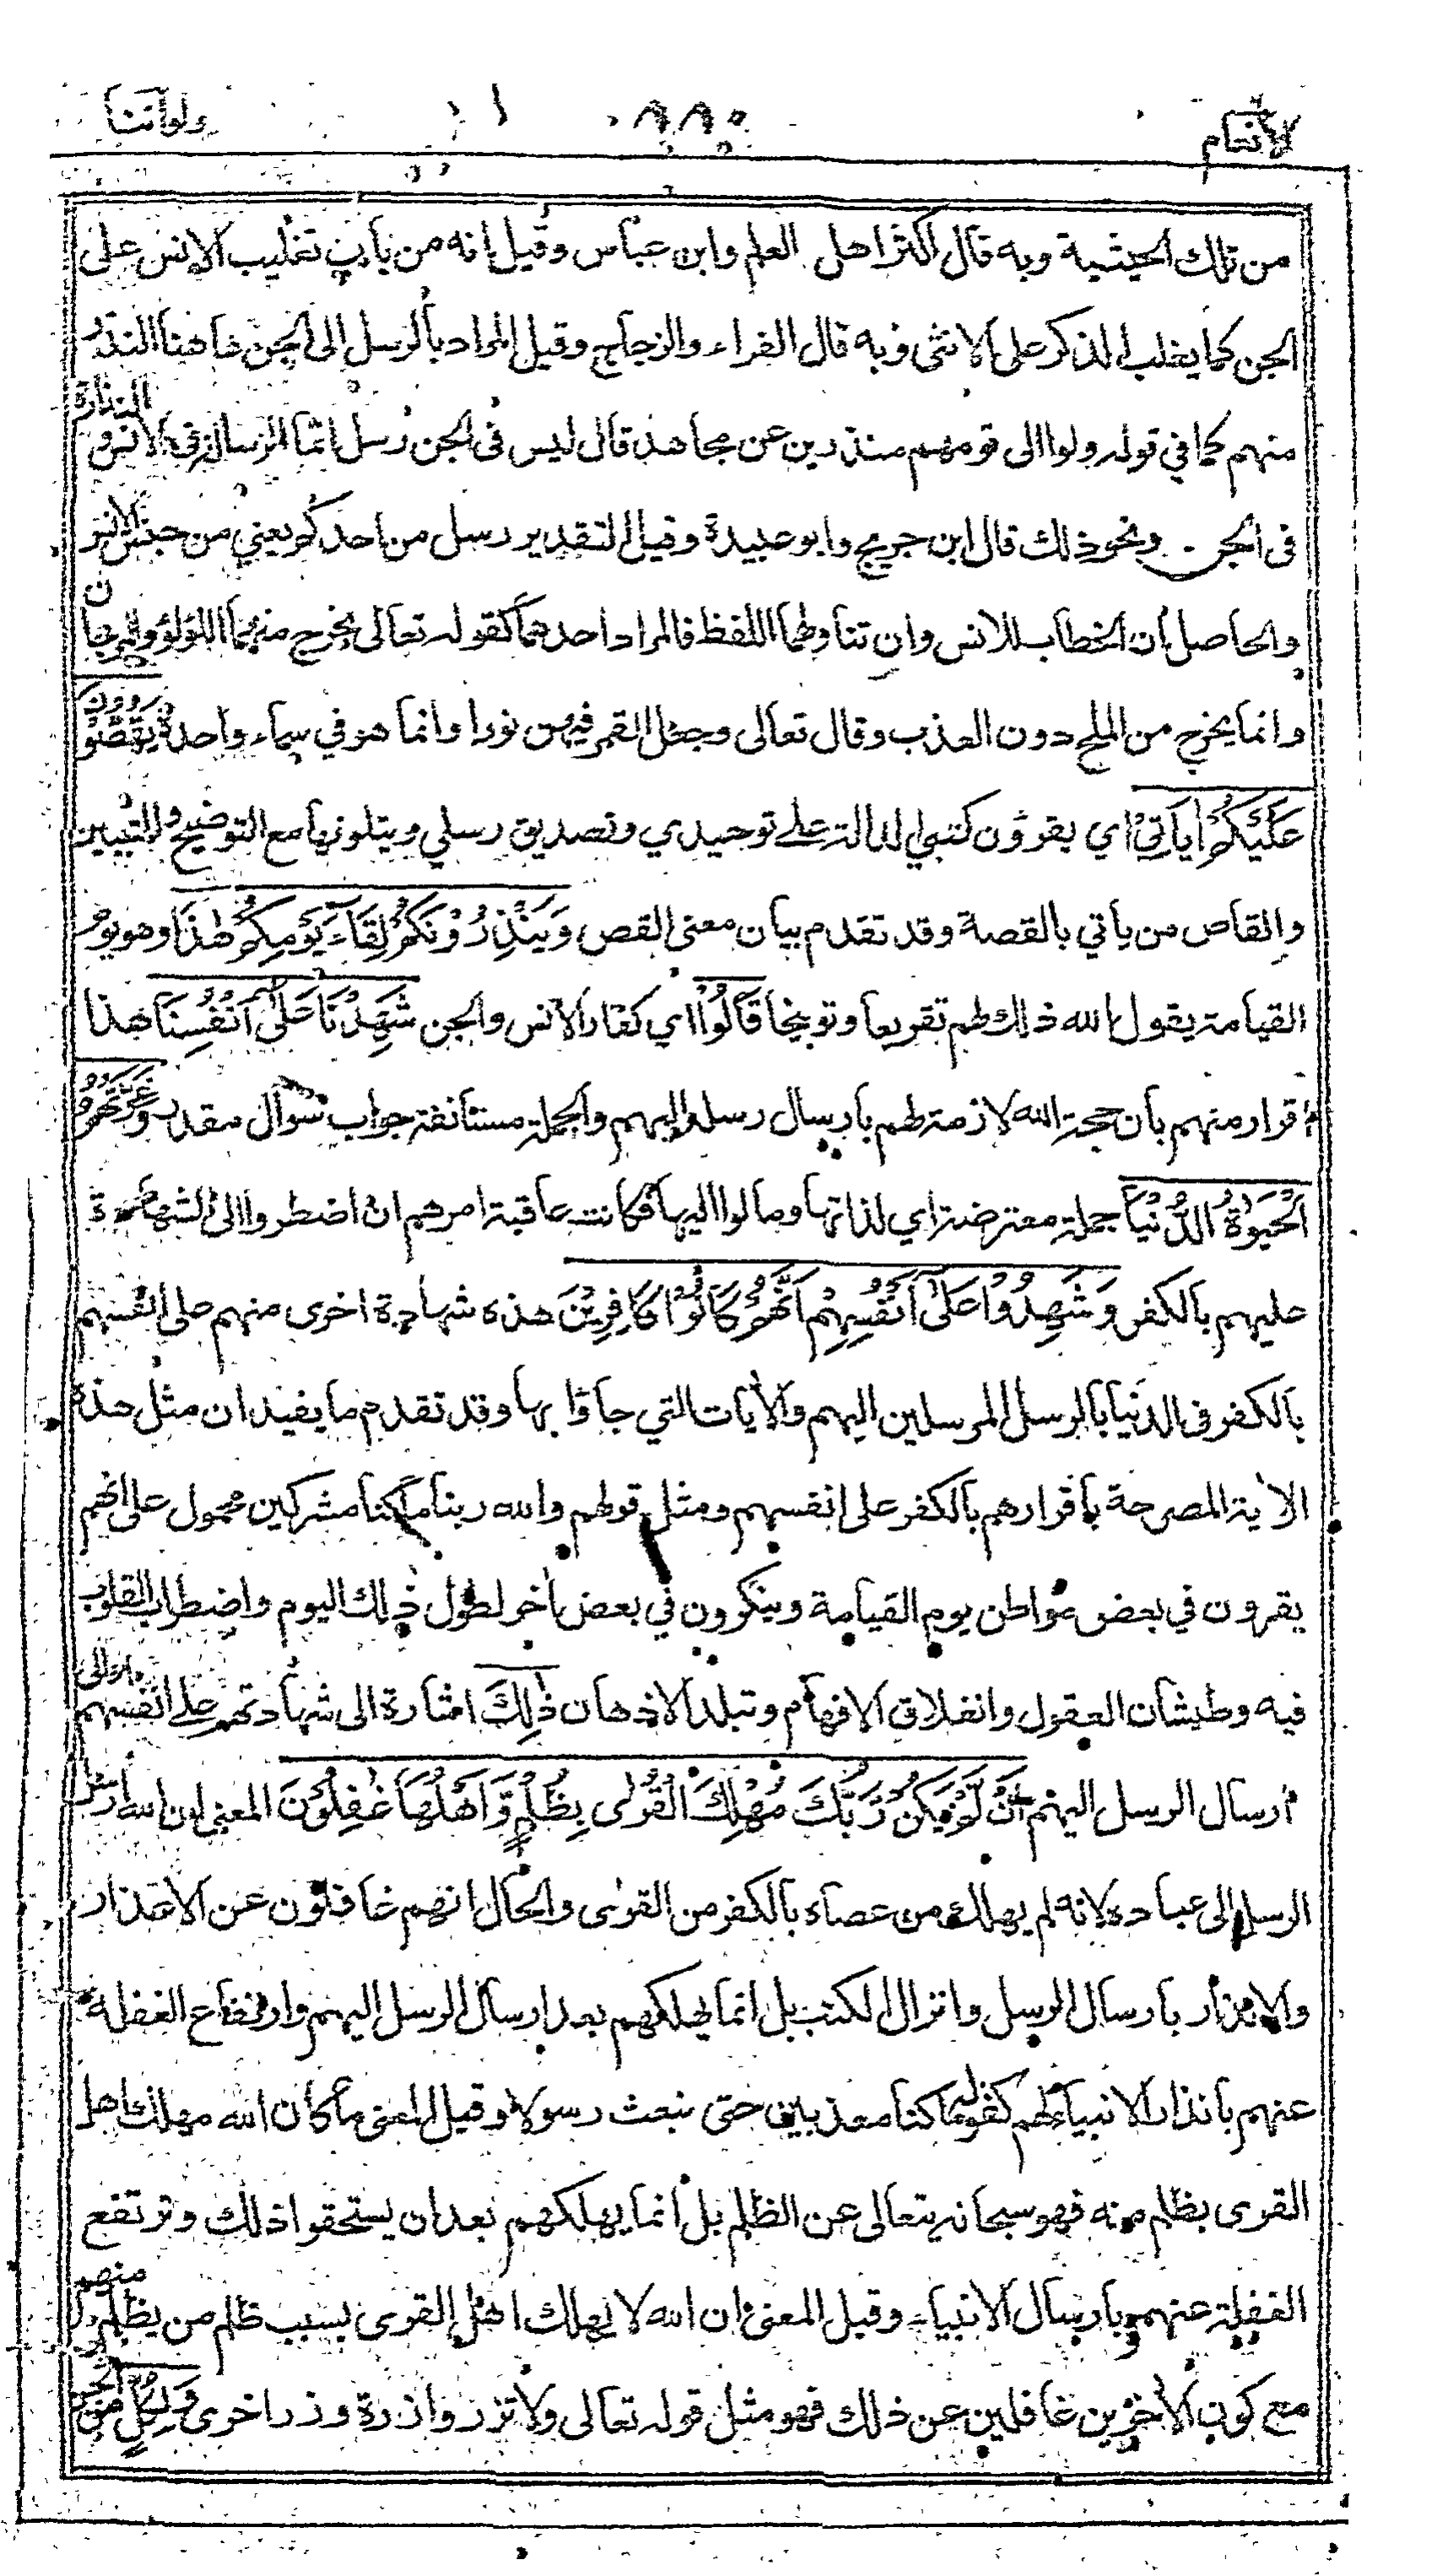 الانعام ٨٨٥ ولواننا
من تلك الحيثية وبه قال اكثر اهل العلم وابن عباس وقيل انه من باب تغليب الانس على
الجن كما يغلب الذكر على الانثى وبه قال الفراء والزجاج وقيل المراد بالرسل الى الجن ها هنا النذر
منهم كما في قوله ولوا الى قومهم منذرين عن مجاهد قال ليس في الجن رسل انما الرسالة في الانس و النذارة
في الجن ونحو ذلك قال ابن جريج وابو عبيدة وقيل التقدير رسل من احدكم يعني من جنس الانس
والحاصل ان الخطاب للانس وان تناولهما اللفظ فالمراد احدهما كقوله تعالى يخرج منهما اللؤلؤ والمرجان
وانما يخرج من الملح دون العذب وقال تعالى وجعل القمر فيهن نورا وانما هو في سماء واحدة يَقُصُّوْنَ
عَلَيْكُمْ اٰيَاتِيْ اي يقرؤن كتبي الدالة على توحيدي وتصديق رسلي ويتلونها مع التوضيح والتبيين
والقاص من ياتي بالقصة وقد تقدم بيان معنى القص وَيُنْذِرُوْنَكُمْ لِقَاءَ يَوْمِكُمْ هٰذَا وهو يوم
القيامة يقول الله ذلك لهم تقريعا وتوبيخا قَالُوْا اي كفار الانس والجن شَهِدْنَا عَلٰى اَنْفُسِنَا هذا
اقرار منهم بان حجة الله لازمة لهم بارسال رسله اليهم والجملة مستانفة جواب سوال مقدر وَغَرَّتْهُمُ
الْحَيٰوةُ الدُّنْيَا جملة معترضة اي لذاتها ومالوا اليها فكانت عاقبة امرهم ان اضطروا الى الشهادة
عليهم بالكفر وَشَهِدُوْا عَلٰى اَنْفُسِهِمْ اَنَّهُمْ كَانُوْا كَافِرِيْنَ هذه شهادة اخرى منهم على انفسهم
بالكفر في الدنيا بالرسل المرسلين اليهم والأيات التي جاؤا بها وقد تقدم ما يفيد ان مثل هذه
الاية المصرحة باقرارهم بالكفر على انفسهم ومثل قولهم والله ربنا ما كنا مشركين محمول على انهم
يقرون في بعض مواطن يوم القيامة وينكرون في بعض اخر لطول ذلك اليوم واضطراب القلوب
فيه وطيشان العقول وانغلاق الافهام وتبلد الاذهان ذٰلِكَ اشارة الى شهادتهم على انفسهم او الى
ارسال الرسل اليهم اَنْ لَّمْ يَكُنْ رَّبُّكَ مُهْلِكَ الْقُرٰى بِظُلْمٍ وَّاَهْلُهَا غٰفِلُوْنَ المعنى ان الله ارسل
الرسل الى عباده لانه لم يهلك من عصاه بالكفر من القرى والحال انهم غافلون عن الاعذار
والانذار بارسال الرسل وانزال الكتب بل انما يهلكهم بعد ارسال الرسل اليهم وارتفاع الغفلة
عنهم بانذار الانبياء لهم كقوله ما كنا معذبين حتى نبعث رسولا وقيل المعنى ما كان الله مهلك اهل
القرى بظلم منه فهو سبحانه يتعالى عن الظلم بل انما يهلكهم بعد ان يستحقوا ذلك وترتفع
الغفلة عنهم بارسال الانبياء وقيل المعنى ان الله لا يهلك اهل القرى بسبب ظلم من يظلم منهم
مع كون الأخرين غافلين عن ذلك فهو مثل قوله تعالى ولا تزر وازرة وزر اخرى وَلِكُلٍّ من